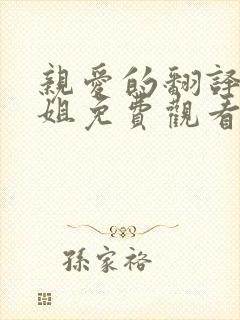 親愛的翻譯
姐免費觀看
孫家裕